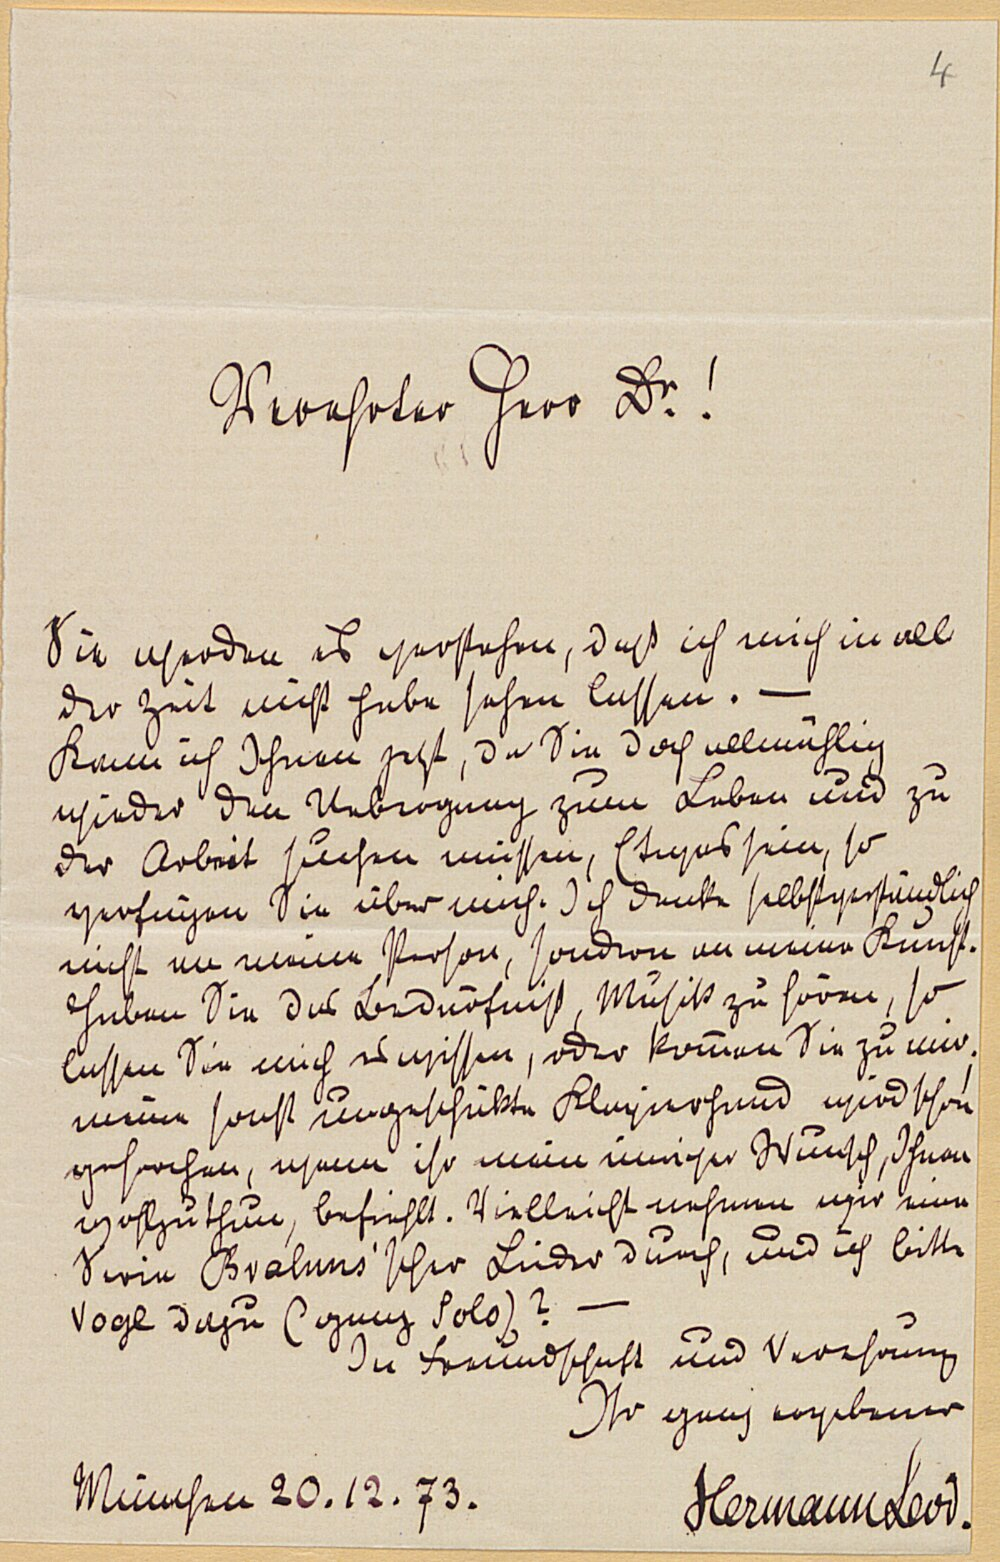 4
Verehrter Herr Dr.!
Sie werden es verstehen, daß ich mich in all
der Zeit nicht habe sehen lassen. —
Kann ich Ihnen jetzt, da Sie doch allmählig
wieder den Uebergang zum Leben und zu
der Arbeit suchen müssen, Etwas sein, so
verfügen Sie über mich. Ich denke selbstverständlich
nicht an meine Person, sondern an meine Kunst.
Haben Sie das Bedürfniß, Musik zu hören, so
lassen Sie mich es wissen, oder kom̅en Sie zu mir.
meine sonst ungeschikte Klavierhand wird schon
gehorchen, wenn ihr mein inniger Wunsch, Ihnen
wohlzuthun, befiehlt. Vielleicht nehmen wir eine
Serie Brahms'scher Lieder durch, und ich bitte
Vogl dazu (ganz Solo)? —
In Freundschaft und Verehrung
Ihr ganz ergebener
München 20.12.73.
Hermann Levi.